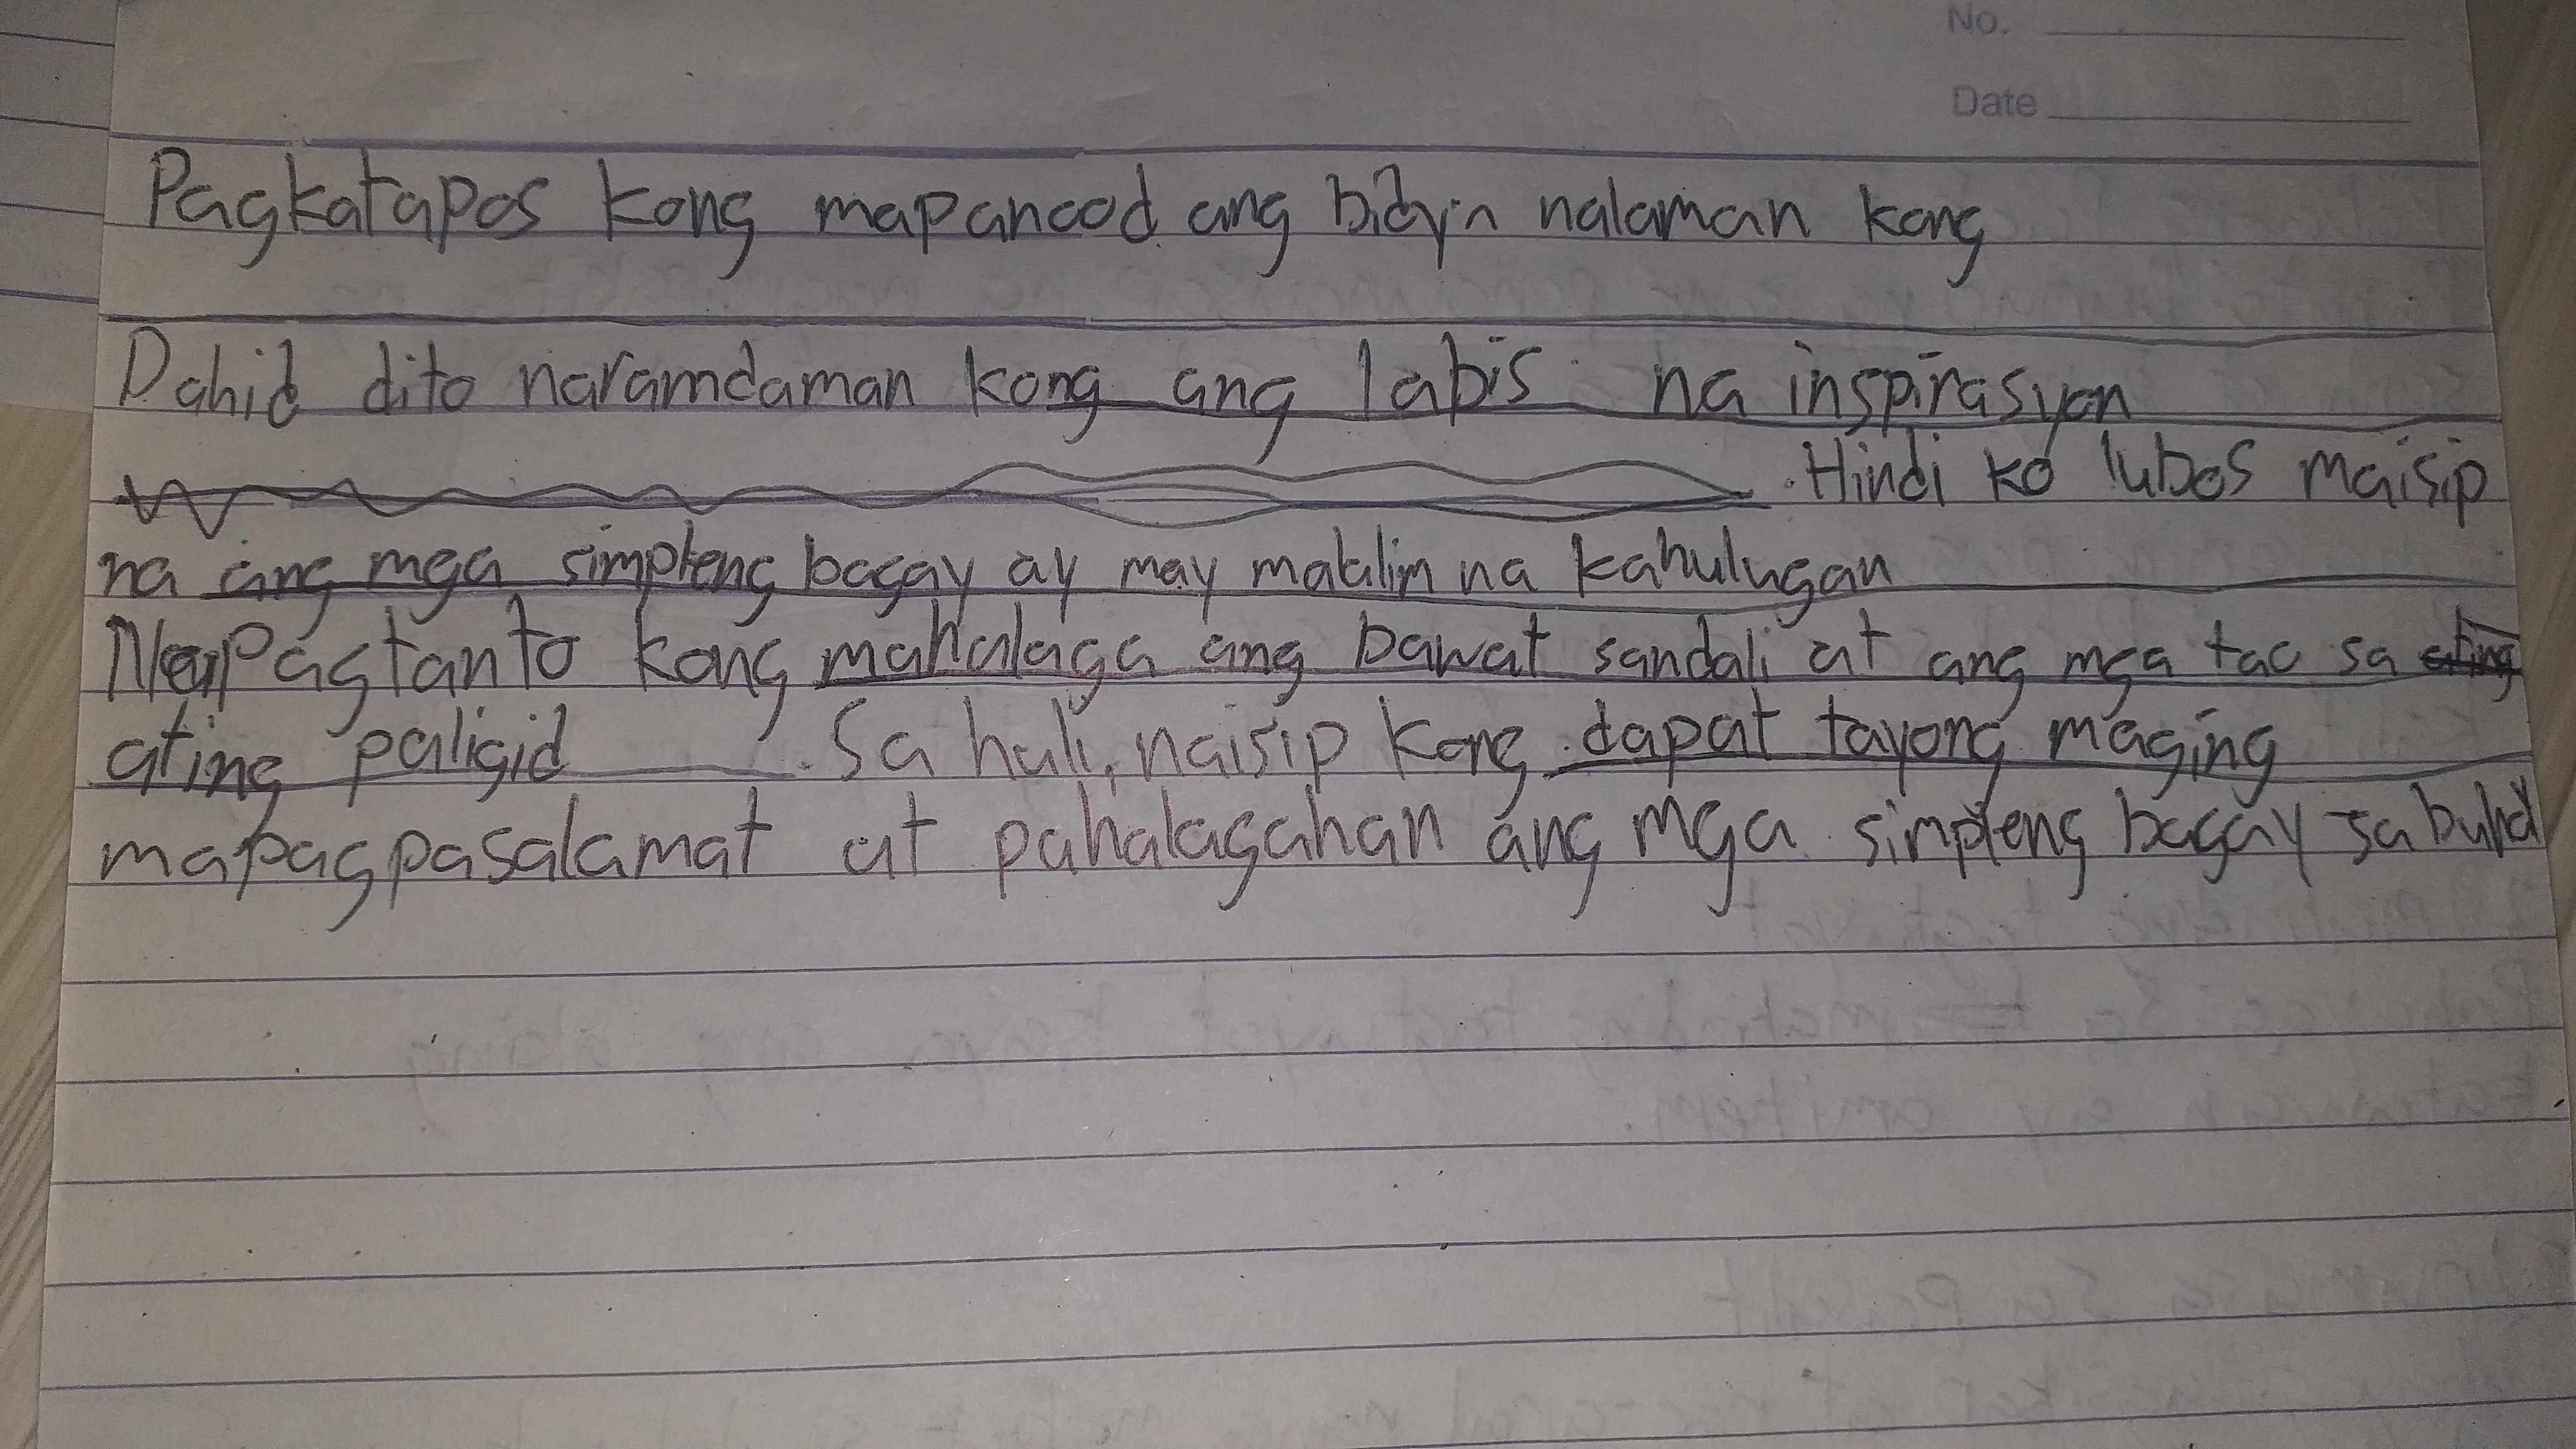 No.
Date
Pagkatapos kong mapanood ang bidyn nalaman kong
Dahid dito naramdaman kong ang labis na inspirasyon
. Hindi ko lubos maisip
na ang mga simpleng bagay ay may malalim na kahulugan
Napagtanto kong mahalaga ang bawat sandali at ang mga tao sa
ating paligid. Sa huli, naisip kong dapat tayong maging
mapagpasalamat at pahalagahan ang mga simpleng bagay sa buhid